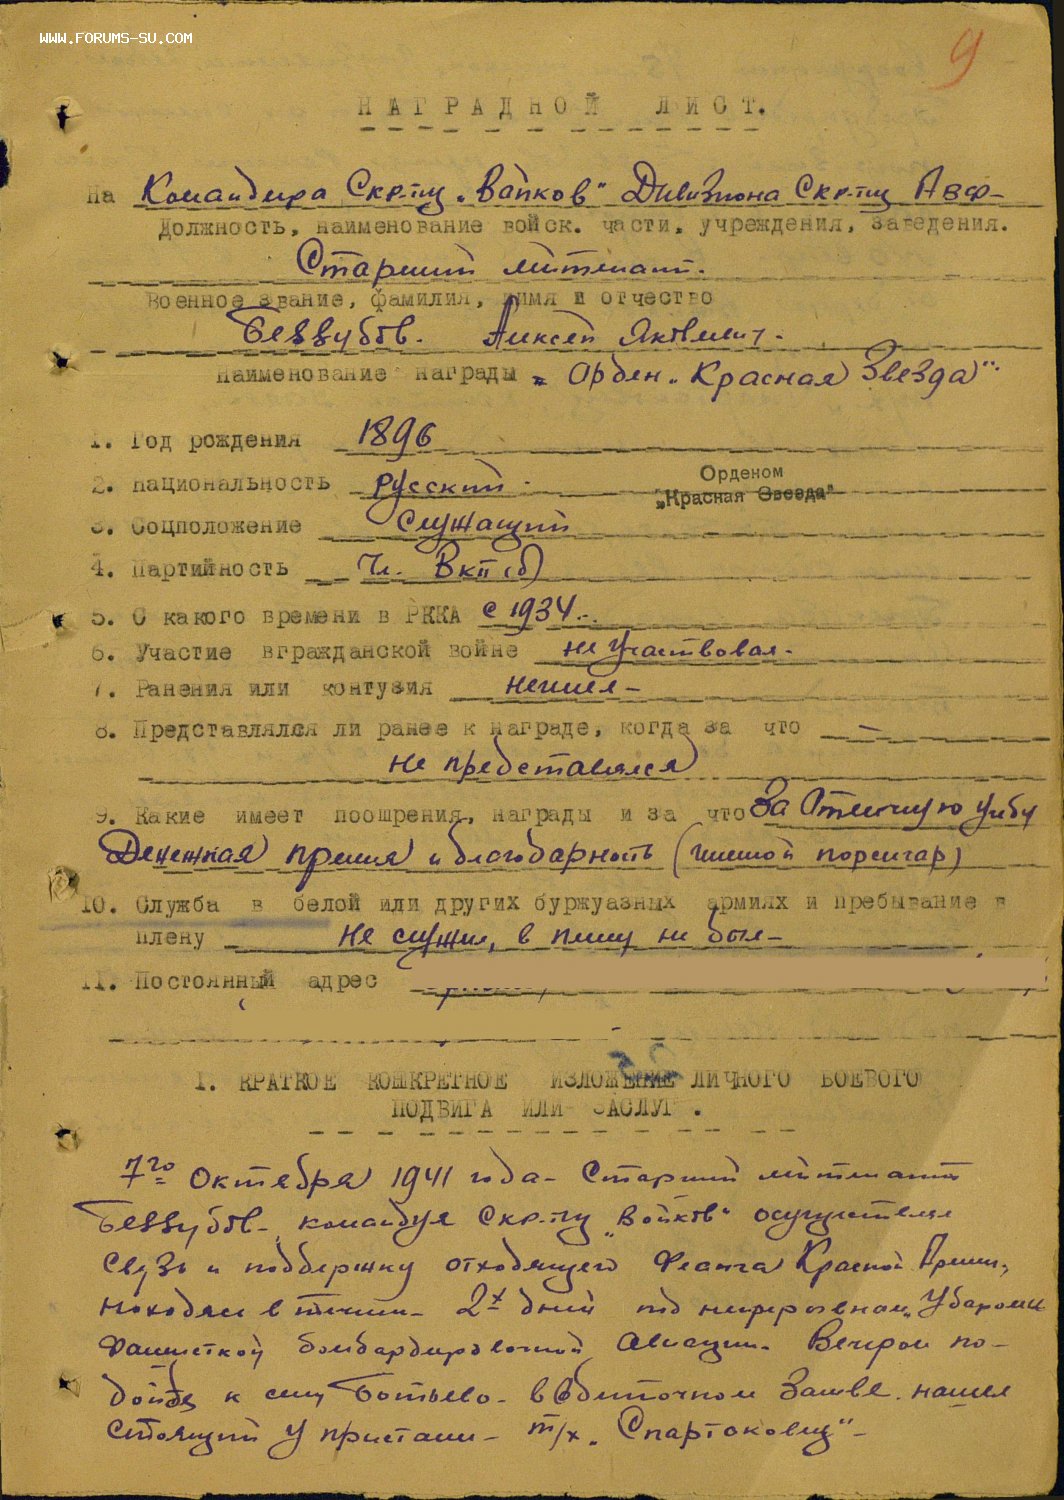 WWW.FORUMS-SU.COM
9
НАГРАДНОЙ ЛИСТ.
на Командира Скр-тщ „Вайков" Дивизиона Скр-тщ АВФ-
Должность, наименование войск. части, учреждения, заведения.
Старший лейтенант.
Военное звание, фамилия, имя и отчество
Беззубов. Алексей Яковлевич.
наименование награды Орден „Красная Звезда"
1. Год рождения 1896
2. национальность русский.
Орденом
„Красная Звезда"
3. Соцположение служащий
4. Партийность Чл. ВКП(б)
5. С какого времени в РККА с 1934..
6. Участие в гражданской войне не участвовал-
7. Ранения или контузия не имел-
8. Представлялся ли ранее к награде, когда за что —
не представлялся
9. Какие имеет поощрения, награды и за что За отличную учебу
Денежная премия и благодарность (именой порсигар)
10. Служба в белой или других буржуазных армиях и пребывание в
плену не служил, в плену не был-
11. Постоянный адрес
I. КРАТКОЕ КОНКРЕТНОЕ ИЗЛОЖЕНИЕ ЛИЧНОГО БОЕВОГО
ПОДВИГА ИЛИ ЗАСЛУГ.
7го Октября 1941 года- Старший лейтенант
Беззубов-, командуя Скр-тщ „Войков" осуществлял
связь и поддержку отходящего фланга Красной Армии,
находясь в течении- 2х дней под непрерывным ударами
фашисткой бомбардировочной авиации. Вечером по-
дойдя к селу Ботьево- в Обиточном заливе нашел
стоящий у пристани- т/х „Спартаковец"-